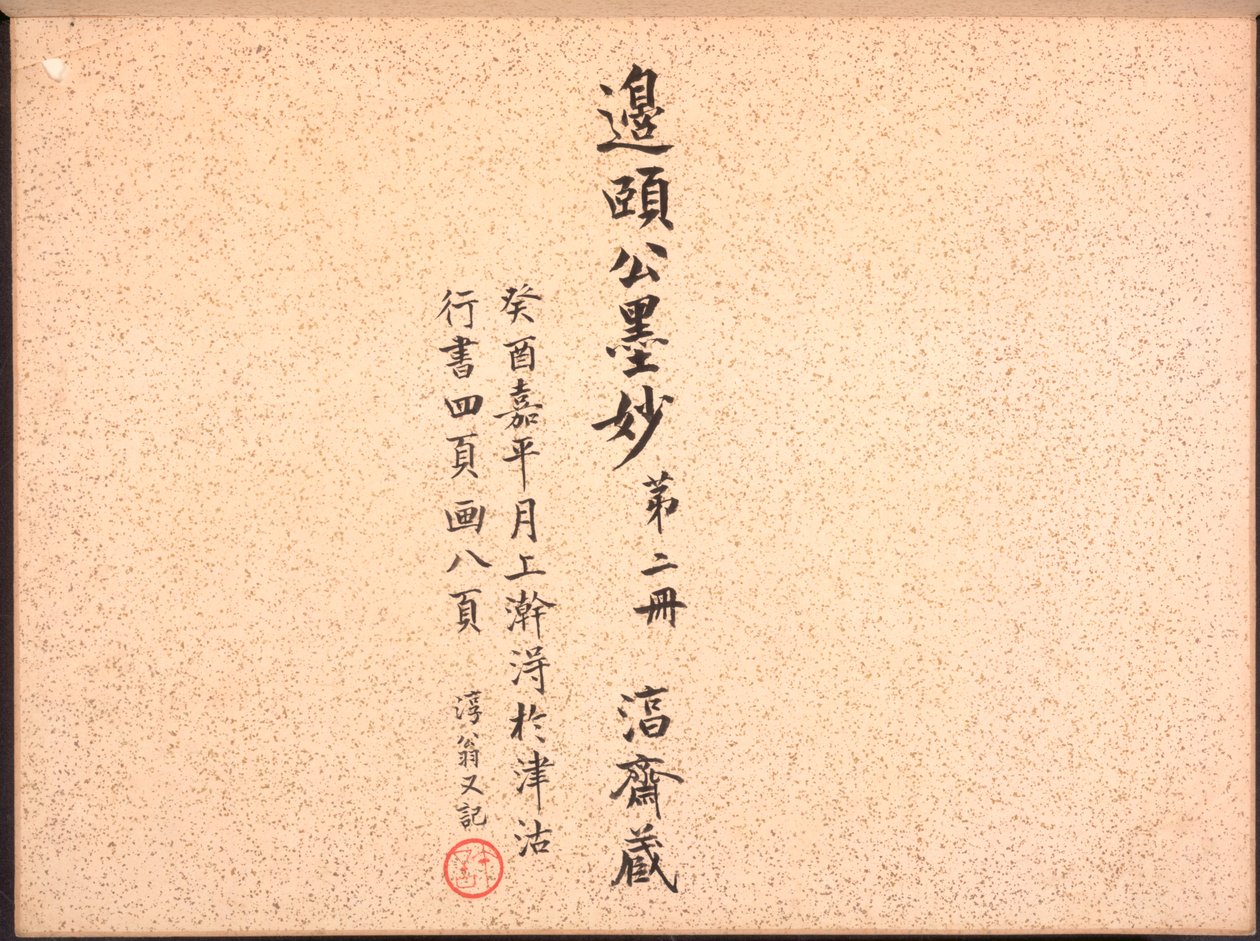 邊頤公墨妙 第二冊 㵆齋蔵
癸酉嘉平月上澣淂於津沽
行書四頁画八頁 淳翁又記